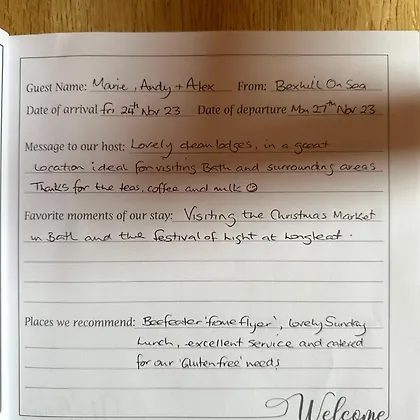 Guest Name: Marie, Andy + Alex From: Bexhill On Sea
Date of arrival Fri 24th Nov 23 Date of departure Mon 27th Nov 23
Message to our host: Lovely clean lodges, in a great
location ideal for visiting Bath and surrounding areas
Thanks for the teas, coffee and milk ☺
Favorite moments of our stay: Visiting the Christmas Market
in Bath and the festival of light at Longleat.
Places we recommend: Beefeater 'fome flyer', lovely Sunday
Lunch, excellent service and catered
for our 'Gluten free' needs
Welcome